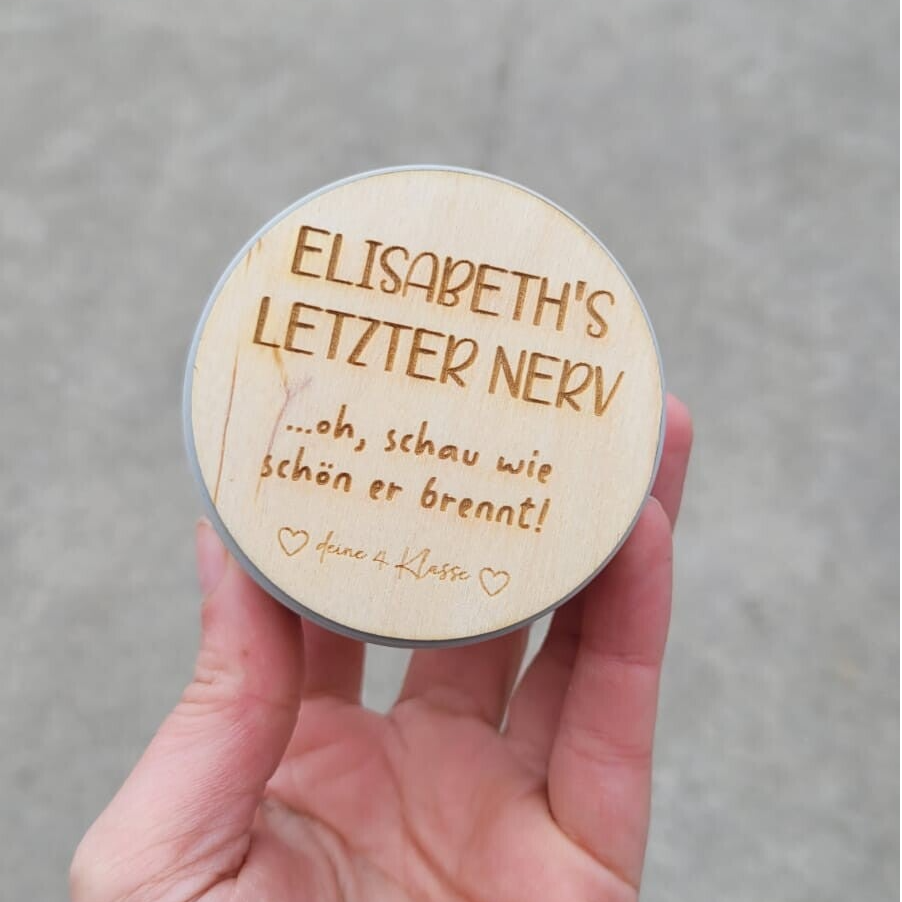 ELISABETH'S
LETZTER NERV
...oh, schau wie
schön er brennt!
deine 4 Klasse